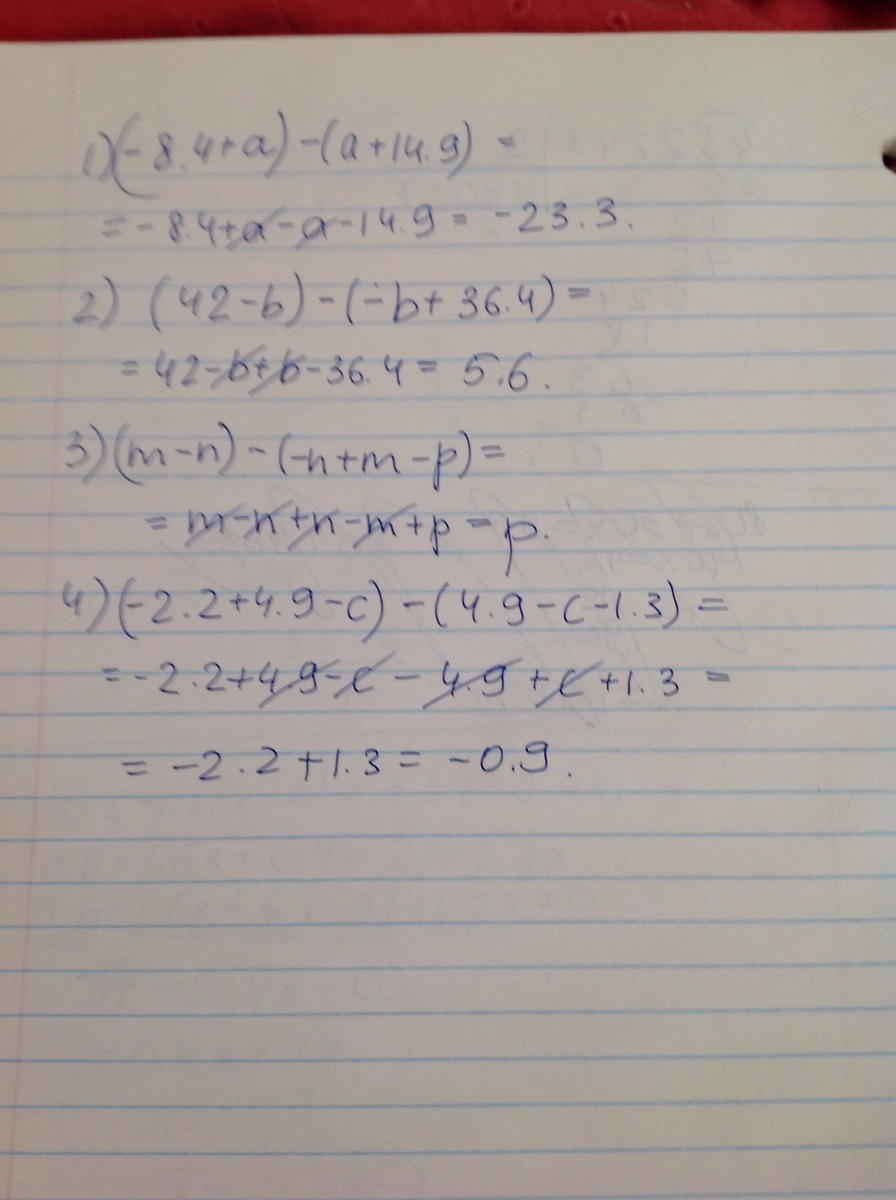 1) (-8.4+a) -(a+14.9) =
= -8.4+a-a-14.9 = -23.3.
2) (42-b) - (-b+ 36.4) =
= 42-b+b-36.4 = 5.6.
3) (m-n) - (-n+m-p) =
= m-n+n-m+p = p.
4) (-2.2+4.9-c) - (4.9-c-1.3) =
= -2.2+4.9-c - 4.9+c+1.3 =
= -2.2+1.3 = -0.9.